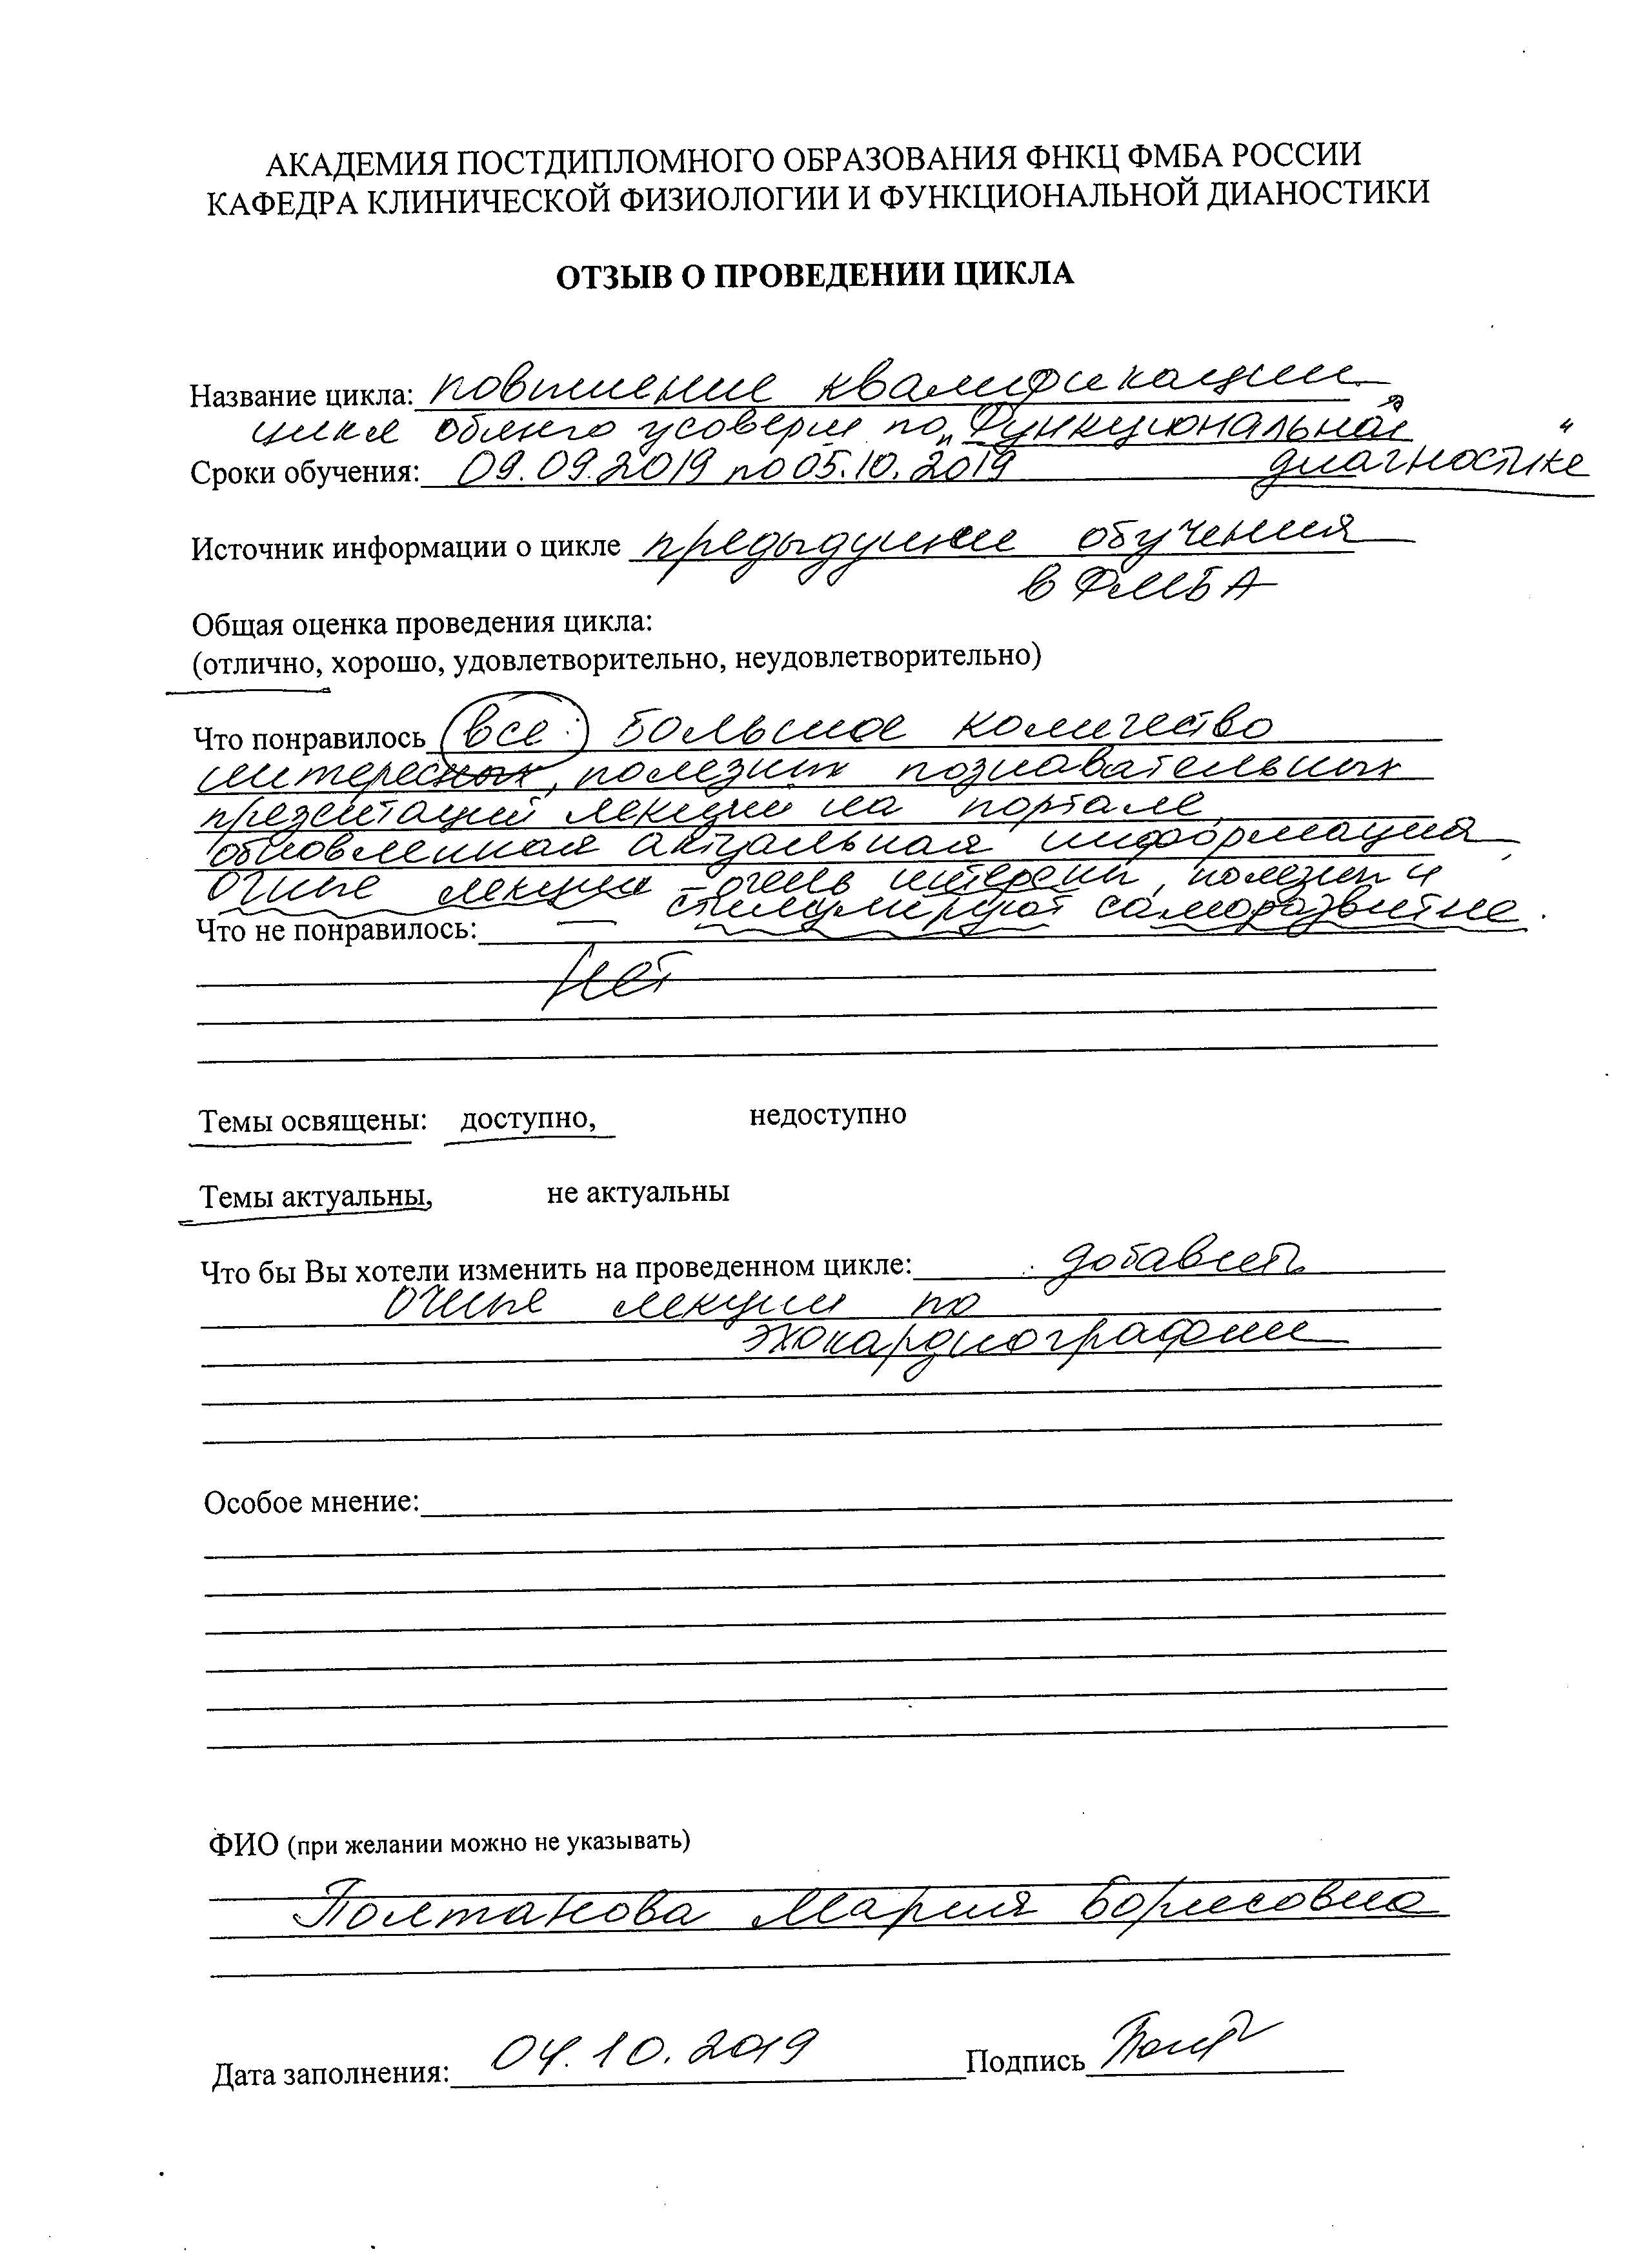 АКАДЕМИЯ ПОСТДИПЛОМНОГО ОБРАЗОВАНИЯ ФНКЦ ФМБА РОССИИ
КАФЕДРА КЛИНИЧЕСКОЙ ФИЗИОЛОГИИ И ФУНКЦИОНАЛЬНОЙ ДИАНОСТИКИ
ОТЗЫВ О ПРОВЕДЕНИИ ЦИКЛА
Название цикла: повышение квалификации
цикл общего усоверш по „Функциональной
Сроки обучения: 09.09.2019 по 05.10.2019 диагностике“
Источник информации о цикле предыдущие обучения
в ФМБА
Общая оценка проведения цикла:
(отлично, хорошо, удовлетворительно, неудовлетворительно)
Что понравилось все: Большое количество
интересных, полезных познавательных
презентаций лекции на портале
обновленная актуальная информация
Очные лекции – очень интересны, полезны и
стимулируют саморазвитие.
Что не понравилось: —
нет
Темы освящены: доступно, недоступно
Темы актуальны, не актуальны
Что бы Вы хотели изменить на проведенном цикле: добавить
очные лекции по
эхокардиографии
Особое мнение:
ФИО (при желании можно не указывать)
Полтанова Мария Борисовна
Дата заполнения: 04.10.2019 Подпись